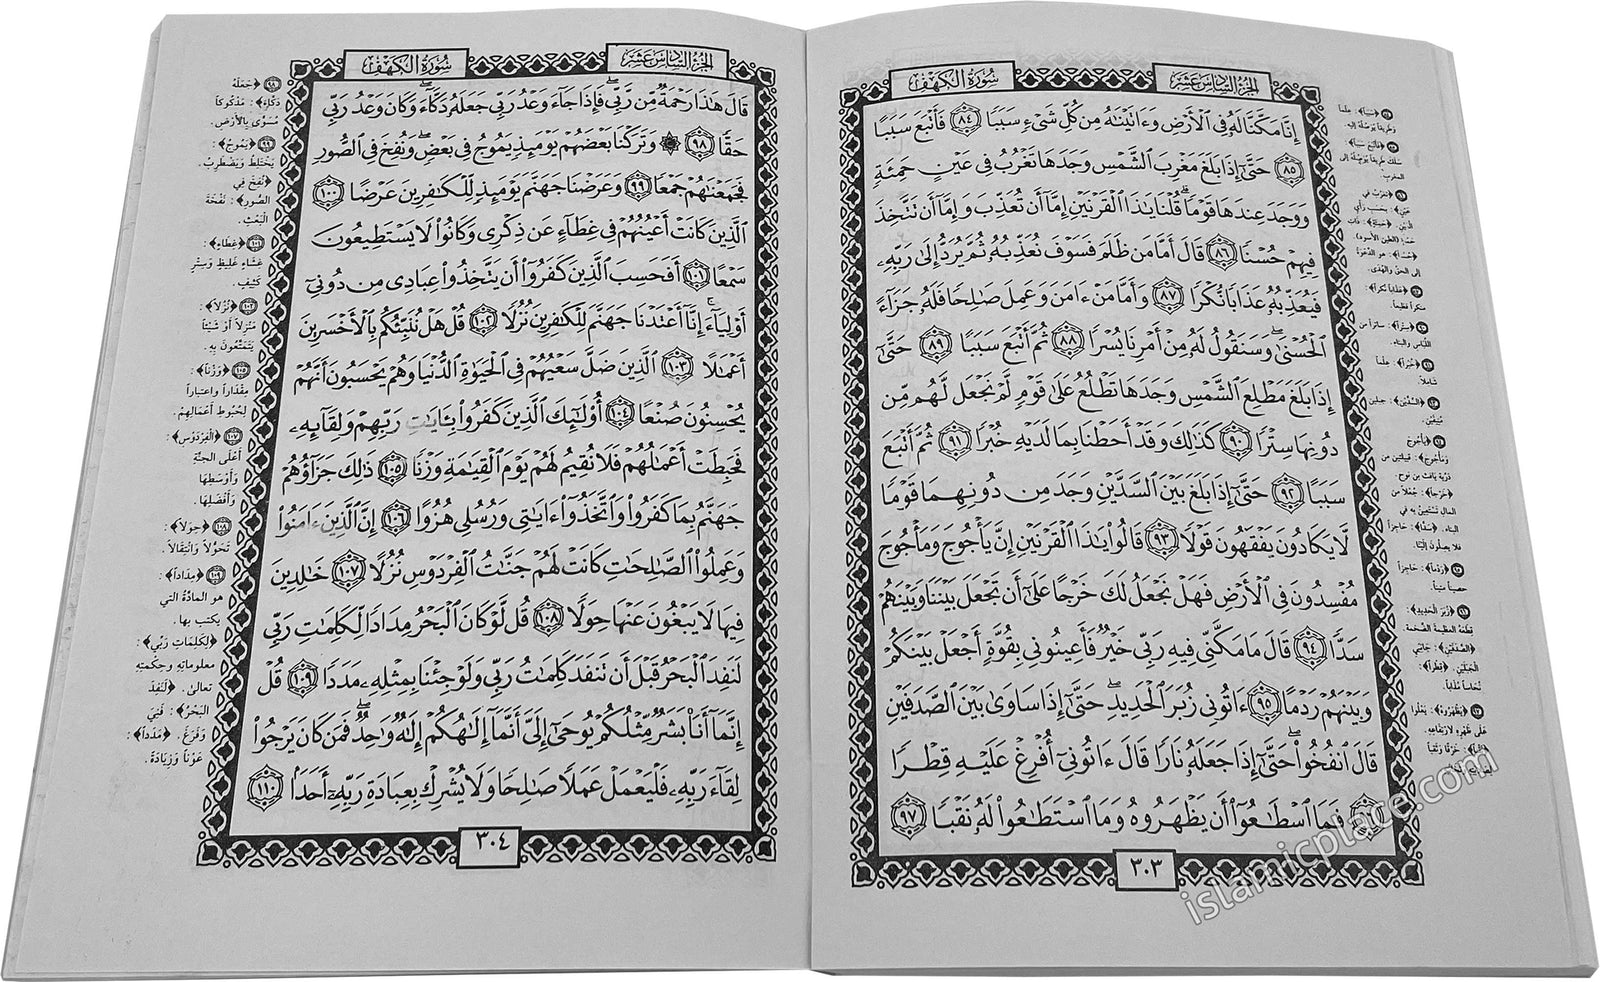 الجزء السادس عشر
سورة الكهف
إِنَّا مَكَّنَّا لَهُۥ فِى ٱلْأَرْضِ وَءَاتَيْنَـٰهُ مِن كُلِّ شَىْءٍ سَبَبًا ٨٤ فَأَتْبَعَ سَبَبًا
٨٥ حَتَّىٰٓ إِذَا بَلَغَ مَغْرِبَ ٱلشَّمْسِ وَجَدَهَا تَغْرُبُ فِى عَيْنٍ حَمِئَةٍ
وَوَجَدَ عِندَهَا قَوْمًا ۗ قُلْنَا يَـٰذَا ٱلْقَرْنَيْنِ إِمَّآ أَن تُعَذِّبَ وَإِمَّآ أَن تَتَّخِذَ
فِيهِمْ حُسْنًا ٨٦ قَالَ أَمَّا مَن ظَلَمَ فَسَوْفَ نُعَذِّبُهُۥ ثُمَّ يُرَدُّ إِلَىٰ رَبِّهِۦ
فَيُعَذِّبُهُۥ عَذَابًا نُّكْرًا ٨٧ وَأَمَّا مَنْ ءَامَنَ وَعَمِلَ صَـٰلِحًا فَلَهُۥ جَزَآءً
ٱلْحُسْنَىٰ ۖ وَسَنَقُولُ لَهُۥ مِنْ أَمْرِنَا يُسْرًا ٨٨ ثُمَّ أَتْبَعَ سَبَبًا ٨٩ حَتَّىٰٓ
إِذَا بَلَغَ مَطْلِعَ ٱلشَّمْسِ وَجَدَهَا تَطْلُعُ عَلَىٰ قَوْمٍ لَّمْ نَجْعَل لَّهُم مِّن
دُونِهَا سِتْرًا ٩٠ كَذَٰلِكَ وَقَدْ أَحَطْنَا بِمَا لَدَيْهِ خُبْرًا ٩١ ثُمَّ أَتْبَعَ
سَبَبًا ٩٢ حَتَّىٰٓ إِذَا بَلَغَ بَيْنَ ٱلسَّدَّيْنِ وَجَدَ مِن دُونِهِمَا قَوْمًا
لَّا يَكَادُونَ يَفْقَهُونَ قَوْلًا ٩٣ قَالُوا۟ يَـٰذَا ٱلْقَرْنَيْنِ إِنَّ يَأْجُوجَ وَمَأْجُوجَ
مُفْسِدُونَ فِى ٱلْأَرْضِ فَهَلْ نَجْعَلُ لَكَ خَرْجًا عَلَىٰٓ أَن تَجْعَلَ بَيْنَنَا وَبَيْنَهُمْ
سَدًّا ٩٤ قَالَ مَا مَكَّنِّى فِيهِ رَبِّى خَيْرٌ فَأَعِينُونِى بِقُوَّةٍ أَجْعَلْ بَيْنَكُمْ
وَبَيْنَهُمْ رَدْمًا ٩٥ ءَاتُونِى زُبَرَ ٱلْحَدِيدِ ۖ حَتَّىٰٓ إِذَا سَاوَىٰ بَيْنَ ٱلصَّدَفَيْنِ
قَالَ ٱنفُخُوا۟ ۖ حَتَّىٰٓ إِذَا جَعَلَهُۥ نَارًا قَالَ ءَاتُونِىٓ أُفْرِغْ عَلَيْهِ قِطْرًا
٩٦ فَمَا ٱسْطَـٰعُوٓا۟ أَن يَظْهَرُوهُ وَمَا ٱسْتَطَـٰعُوا۟ لَهُۥ نَقْبًا ٩٧
٣٠٣
الجزء السادس عشر
سورة الكهف
قَالَ هَـٰذَا رَحْمَةٌ مِّن رَّبِّى ۖ فَإِذَا جَآءَ وَعْدُ رَبِّى جَعَلَهُۥ دَكَّآءَ ۖ وَكَانَ وَعْدُ رَبِّى
حَقًّا ٩٨ ۞ وَتَرَكْنَا بَعْضَهُمْ يَوْمَئِذٍ يَمُوجُ فِى بَعْضٍ ۖ وَنُفِخَ فِى ٱلصُّورِ
فَجَمَعْنَـٰهُمْ جَمْعًا ٩٩ وَعَرَضْنَا جَهَنَّمَ يَوْمَئِذٍ لِّلْكَـٰفِرِينَ عَرْضًا ١٠٠
ٱلَّذِينَ كَانَتْ أَعْيُنُهُمْ فِى غِطَآءٍ عَن ذِكْرِى وَكَانُوا۟ لَا يَسْتَطِيعُونَ
سَمْعًا ١٠١ أَفَحَسِبَ ٱلَّذِينَ كَفَرُوٓا۟ أَن يَتَّخِذُوا۟ عِبَادِى مِن دُونِىٓ
أَوْلِيَآءَ ۚ إِنَّآ أَعْتَدْنَا جَهَنَّمَ لِلْكَـٰفِرِينَ نُزُلًا ١٠٢ قُلْ هَلْ نُنَبِّئُكُم بِٱلْأَخْسَرِينَ
أَعْمَـٰلًا ١٠٣ ٱلَّذِينَ ضَلَّ سَعْيُهُمْ فِى ٱلْحَيَوٰةِ ٱلدُّنْيَا وَهُمْ يَحْسَبُونَ أَنَّهُمْ
يُحْسِنُونَ صُنْعًا ١٠٤ أُو۟لَـٰٓئِكَ ٱلَّذِينَ كَفَرُوا۟ بِـَٔايَـٰتِ رَبِّهِمْ وَلِقَآئِهِۦ
فَحَبِطَتْ أَعْمَـٰلُهُمْ فَلَا نُقِيمُ لَهُمْ يَوْمَ ٱلْقِيَـٰمَةِ وَزْنًا ١٠٥ ذَٰلِكَ جَزَآؤُهُمْ
جَهَنَّمُ بِمَا كَفَرُوا۟ وَٱتَّخَذُوٓا۟ ءَايَـٰتِى وَرُسُلِى هُزُوًا ١٠٦ إِنَّ ٱلَّذِينَ ءَامَنُوا۟
وَعَمِلُوا۟ ٱلصَّـٰلِحَـٰتِ كَانَتْ لَهُمْ جَنَّـٰتُ ٱلْفِرْدَوْسِ نُزُلًا ١٠٧ خَـٰلِدِينَ
فِيهَا لَا يَبْغُونَ عَنْهَا حِوَلًا ١٠٨ قُل لَّوْ كَانَ ٱلْبَحْرُ مِدَادًا لِّكَلِمَـٰتِ رَبِّى
لَنَفِدَ ٱلْبَحْرُ قَبْلَ أَن تَنفَدَ كَلِمَـٰتُ رَبِّى وَلَوْ جِئْنَا بِمِثْلِهِۦ مَدَدًا ١٠٩ قُلْ
إِنَّمَآ أَنَا۠ بَشَرٌ مِّثْلُكُمْ يُوحَىٰٓ إِلَىَّ أَنَّمَآ إِلَـٰهُكُمْ إِلَـٰهٌ وَٰحِدٌ ۖ فَمَن كَانَ يَرْجُوا۟
لِقَآءَ رَبِّهِۦ فَلْيَعْمَلْ عَمَلًا صَـٰلِحًا وَلَا يُشْرِكْ بِعِبَادَةِ رَبِّهِۦٓ أَحَدًۢا ١١٠
٣٠٤
٩٨ ﴿جَعَلَهُ
دَكَّاءَ﴾ : مَدْكُوكاً
مُسَوًّى بِالأَرْضِ.
٩٩ ﴿يَمُوجُ﴾ :
يَخْتَلِطُ وَيَضْطَرِبُ.
﴿نُفِخَ فِي
الصُّورِ﴾ : نَفْخَةَ
الْبَعْثِ.
١٠١ ﴿غِطَاءٍ﴾ :
غِشَاءٍ غَلِيظٍ وَسِتْرٍ
كَثِيفٍ.
١٠٢ ﴿نُزُلاً﴾ :
مَنْزِلاً أَوْ شَيْئاً
يَتَمَتَّعُونَ بِهِ.
١٠٥ ﴿وَزْناً﴾ :
مِقْدَاراً واعتباراً
لِحُبُوطِ أَعْمَالِهِمْ.
١٠٧ ﴿الْفِرْدَوْسِ﴾ :
أَعْلَى الجنَّةِ
وَأَوْسَطِهَا
وَأَفْضَلِهَا.
١٠٨ ﴿حِوَلاً﴾ :
تَحَوُّلاً وَانْتِقَالاً.
١٠٩ ﴿مِدَاداً﴾ :
هو المادَّةُ التي
يكتب بها.
﴿لِكَلِمَاتِ رَبِّي﴾ :
معلوماتِهِ وحِكْمَتِهِ
تعالى. ﴿لَنَفِدَ
البَحْرُ﴾ : فَنِيَ
وَفَرَغَ. ﴿مَدَداً﴾ :
عَوْناً وَزِيَادَةً.
islamicplace.com